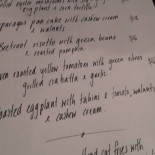 eggplant & corn tortilla
asparagus pan cake with cashew cream & walnuts
Beetroot risotto with green beans & roasted pumpkin
roasted yellow tomatoes with green olives
grilled ciabatta & garlic
Roasted eggplant with tahini & tomato, walnuts
& cashew cream
Hand cut fries with